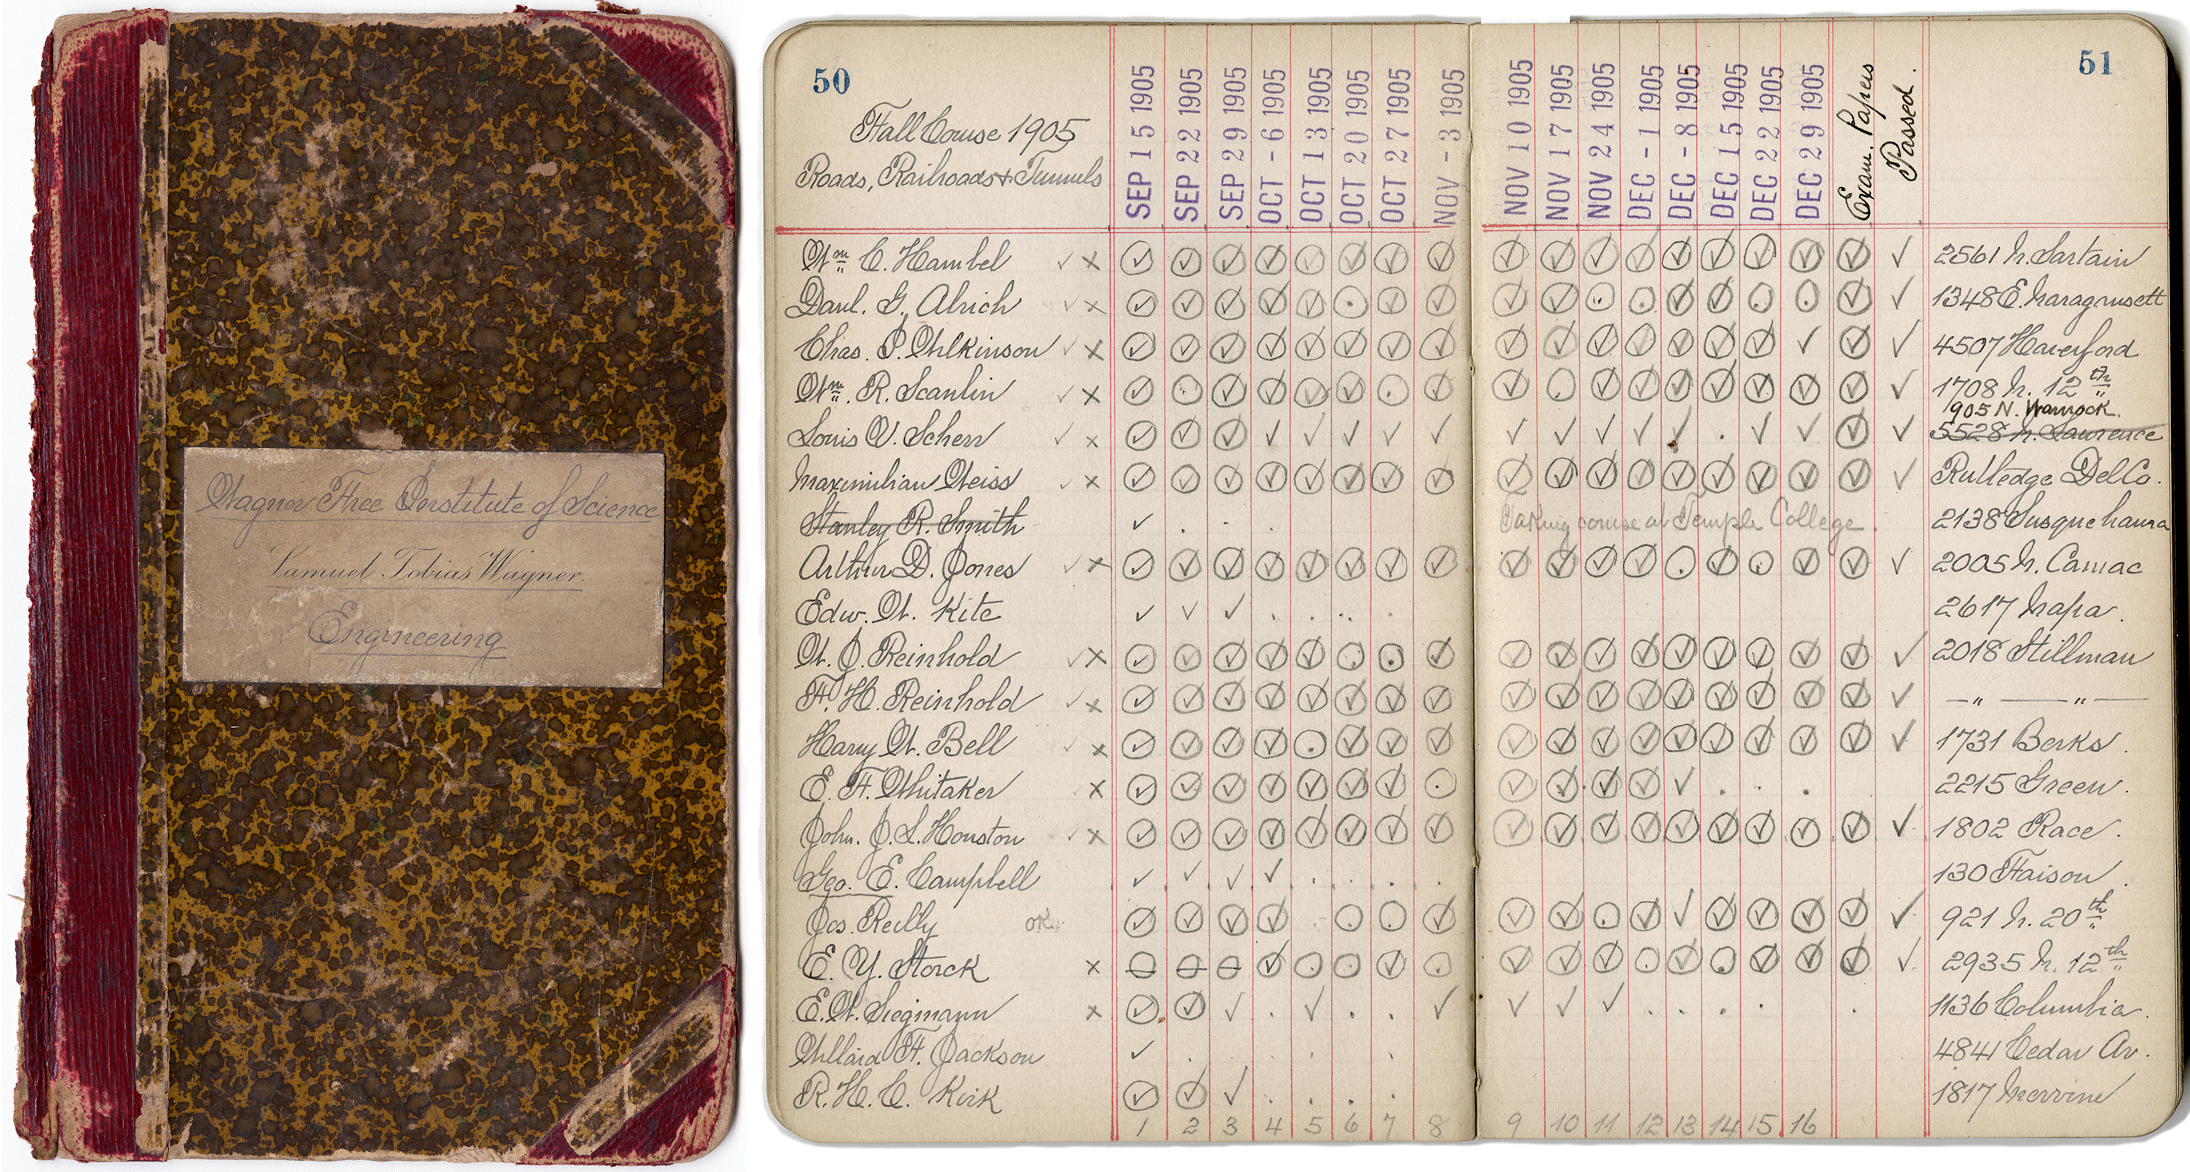 Wagner Free Institute of Science
Samuel Tobias Wagner.
Engineering
50
Fall Course 1905
Roads, Railroads & Tunnels
SEP 15 1905
SEP 22 1905
SEP 29 1905
OCT - 6 1905
OCT 13 1905
OCT 20 1905
OCT 27 1905
NOV - 3 1905
NOV 10 1905
NOV 17 1905
NOV 24 1905
DEC - 1 1905
DEC - 8 1905
DEC 15 1905
DEC 22 1905
DEC 29 1905
Exam. Papers
Passed.
51
Wm. C. Hambel ✓ × 2561 N. Sartain
Danl. G. Alrich ✓ × 1348 E. Naragansett
Chas. P. Wilkinson ✓ × 4507 Haverford
Wm. R. Scanlin ✓ × 1708 N. 12th
905 N. Warnock.
Louis V. Scherr ✓ × 5528 N. Lawrence
Maximilian Weiss ✓ × Rutledge Del Co.
Stanley R. Smith Taking course at Temple College. 2138 Susquehanna
Arthur D. Jones ✓ × 2005 N. Camac
Edw. W. Kite 2617 Napa.
W. J. Reinhold ✓ × 2018 Stillman
F. H. Reinhold ✓ × — " — " —
Harry W. Bell ✓ × 1731 Berks.
E. F. Whitaker × 2215 Green.
John. J. S. Houston ✓ × 1802 Race.
Geo. E. Campbell 130 Faison.
Jos. Reilly OK. 921 N. 20th
E. Y. Storck × 2935 N. 12th
E. W. Siegmann × 1136 Columbia.
Willard F. Jackson 4841 Cedar Av.
R. H. C. Kirk 1817 Mervine
1 2 3 4 5 6 7 8 9 10 11 12 13 14 15 16